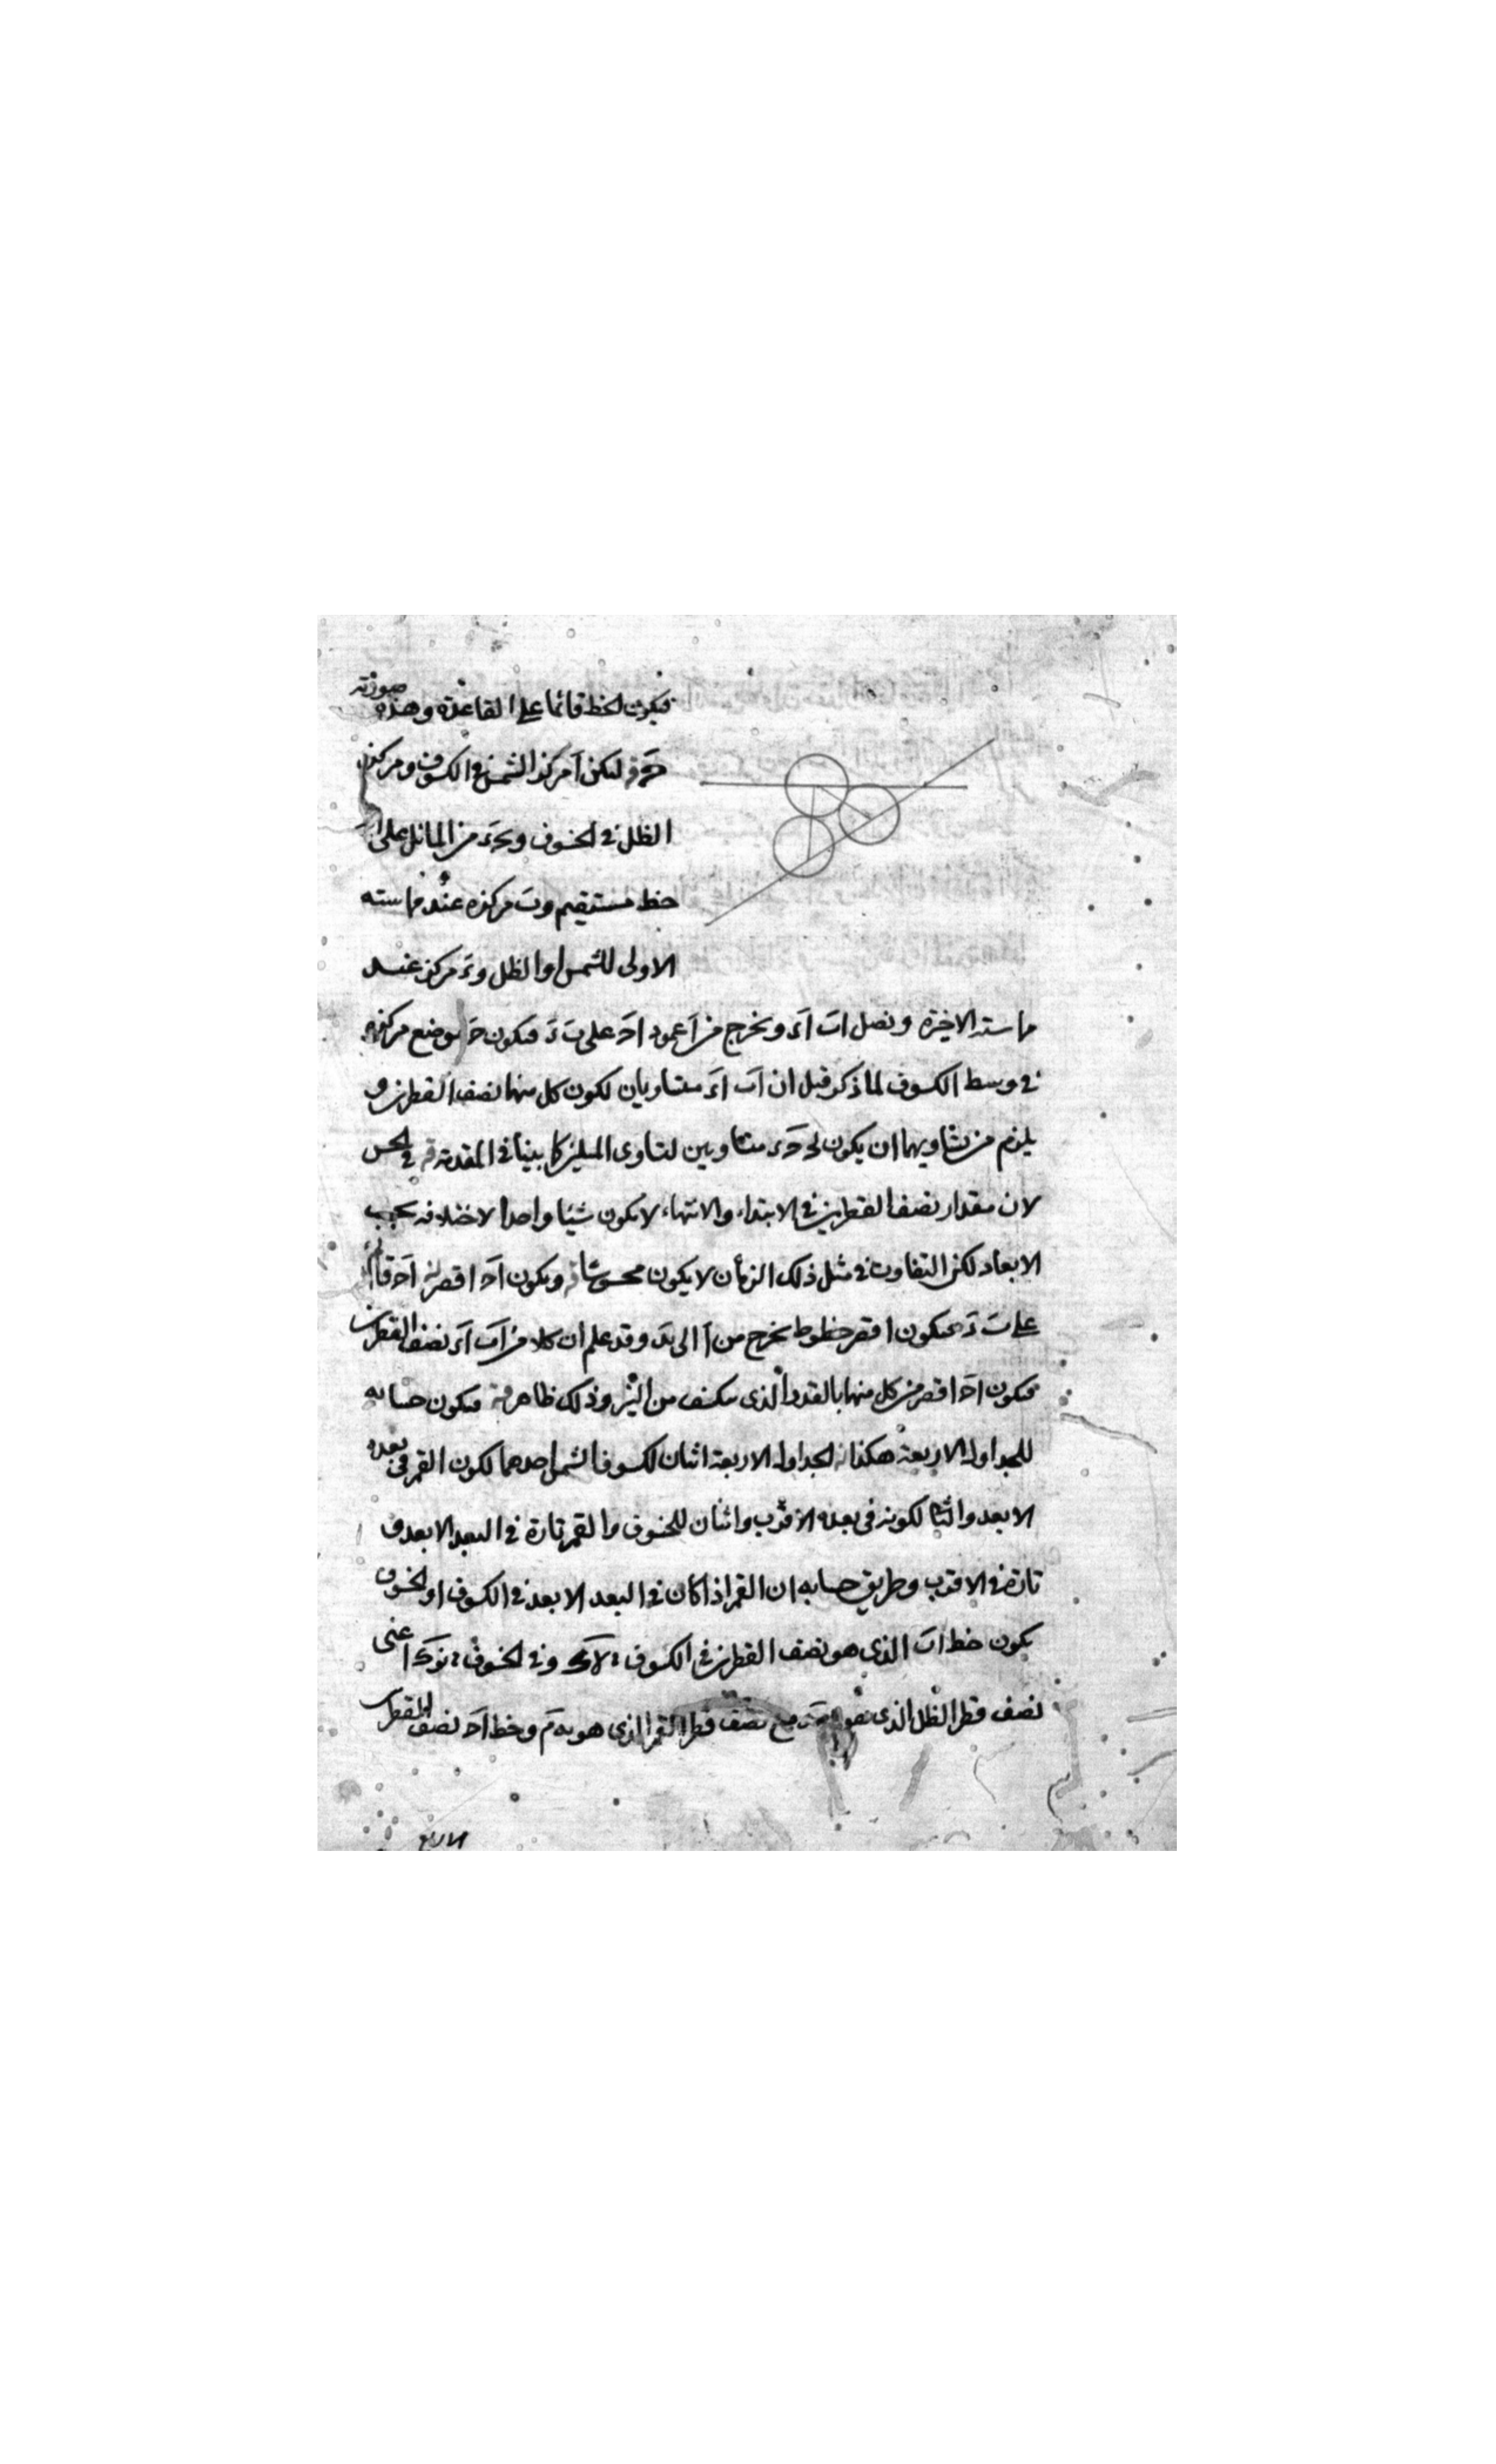 فيكون الخط قائما على القاعدة وهذه صورته
فليكن آ مركز الشمس في الكسوف ومركز
الظل في الخسوف و من المائل على
خط مستقيم وب مركزه عند مماسته
الاولى للشمس او الظل و د مركزه عند
مماسته الاخيرة ونصل اب اد ونخرج من آ عمود اح على ب د فيكون ح موضع مركزه
في وسط الكسوف لما ذكر قبل ان اب اد متساويان لكون كل منهما نصف القطرين و
يلزم من تساويهما ان يكون متساويين لتساوى الميلين كما بينا في المقدمة في الحس
لان مقدار نصف القطرين في الابتداء والانتهاء لا يكون شيئا واحدا لاختلافه بحسب
الابعاد لكن التفاوت في مثل ذلك الزمان لا يكون محسوسا ويكون اح اقصر لان اح قائم
على ب د فيكون اقصر خطوط يخرج من آ الى بد وقد علم ان كلا من اب اد نصف القطرين
فيكون اح اقصر من كل منهما بالقدر الذى ينكسف من النير وذلك ظاهر فيكون حسابه
للجداول الاربعة هكذا الجداول الاربعة اثنان لكسوف الشمس احدهما لكون القمر في بعده
الابعد والثاني لكونه في بعده الاقرب واثنان للخسوف والقمر تارة في البعد الابعد و
تارة في الاقرب وطريق حسابه ان القمر اذا كان في البعد الابعد في الكسوف او الخسوف
يكون خط اب الذى هو نصف القطرين في الكسوف وفي الخسوف اعنى
نصف قطر الظل الذى هو مع نصف قطر القمر الذى هو يه م وخط اح نصف القطرين